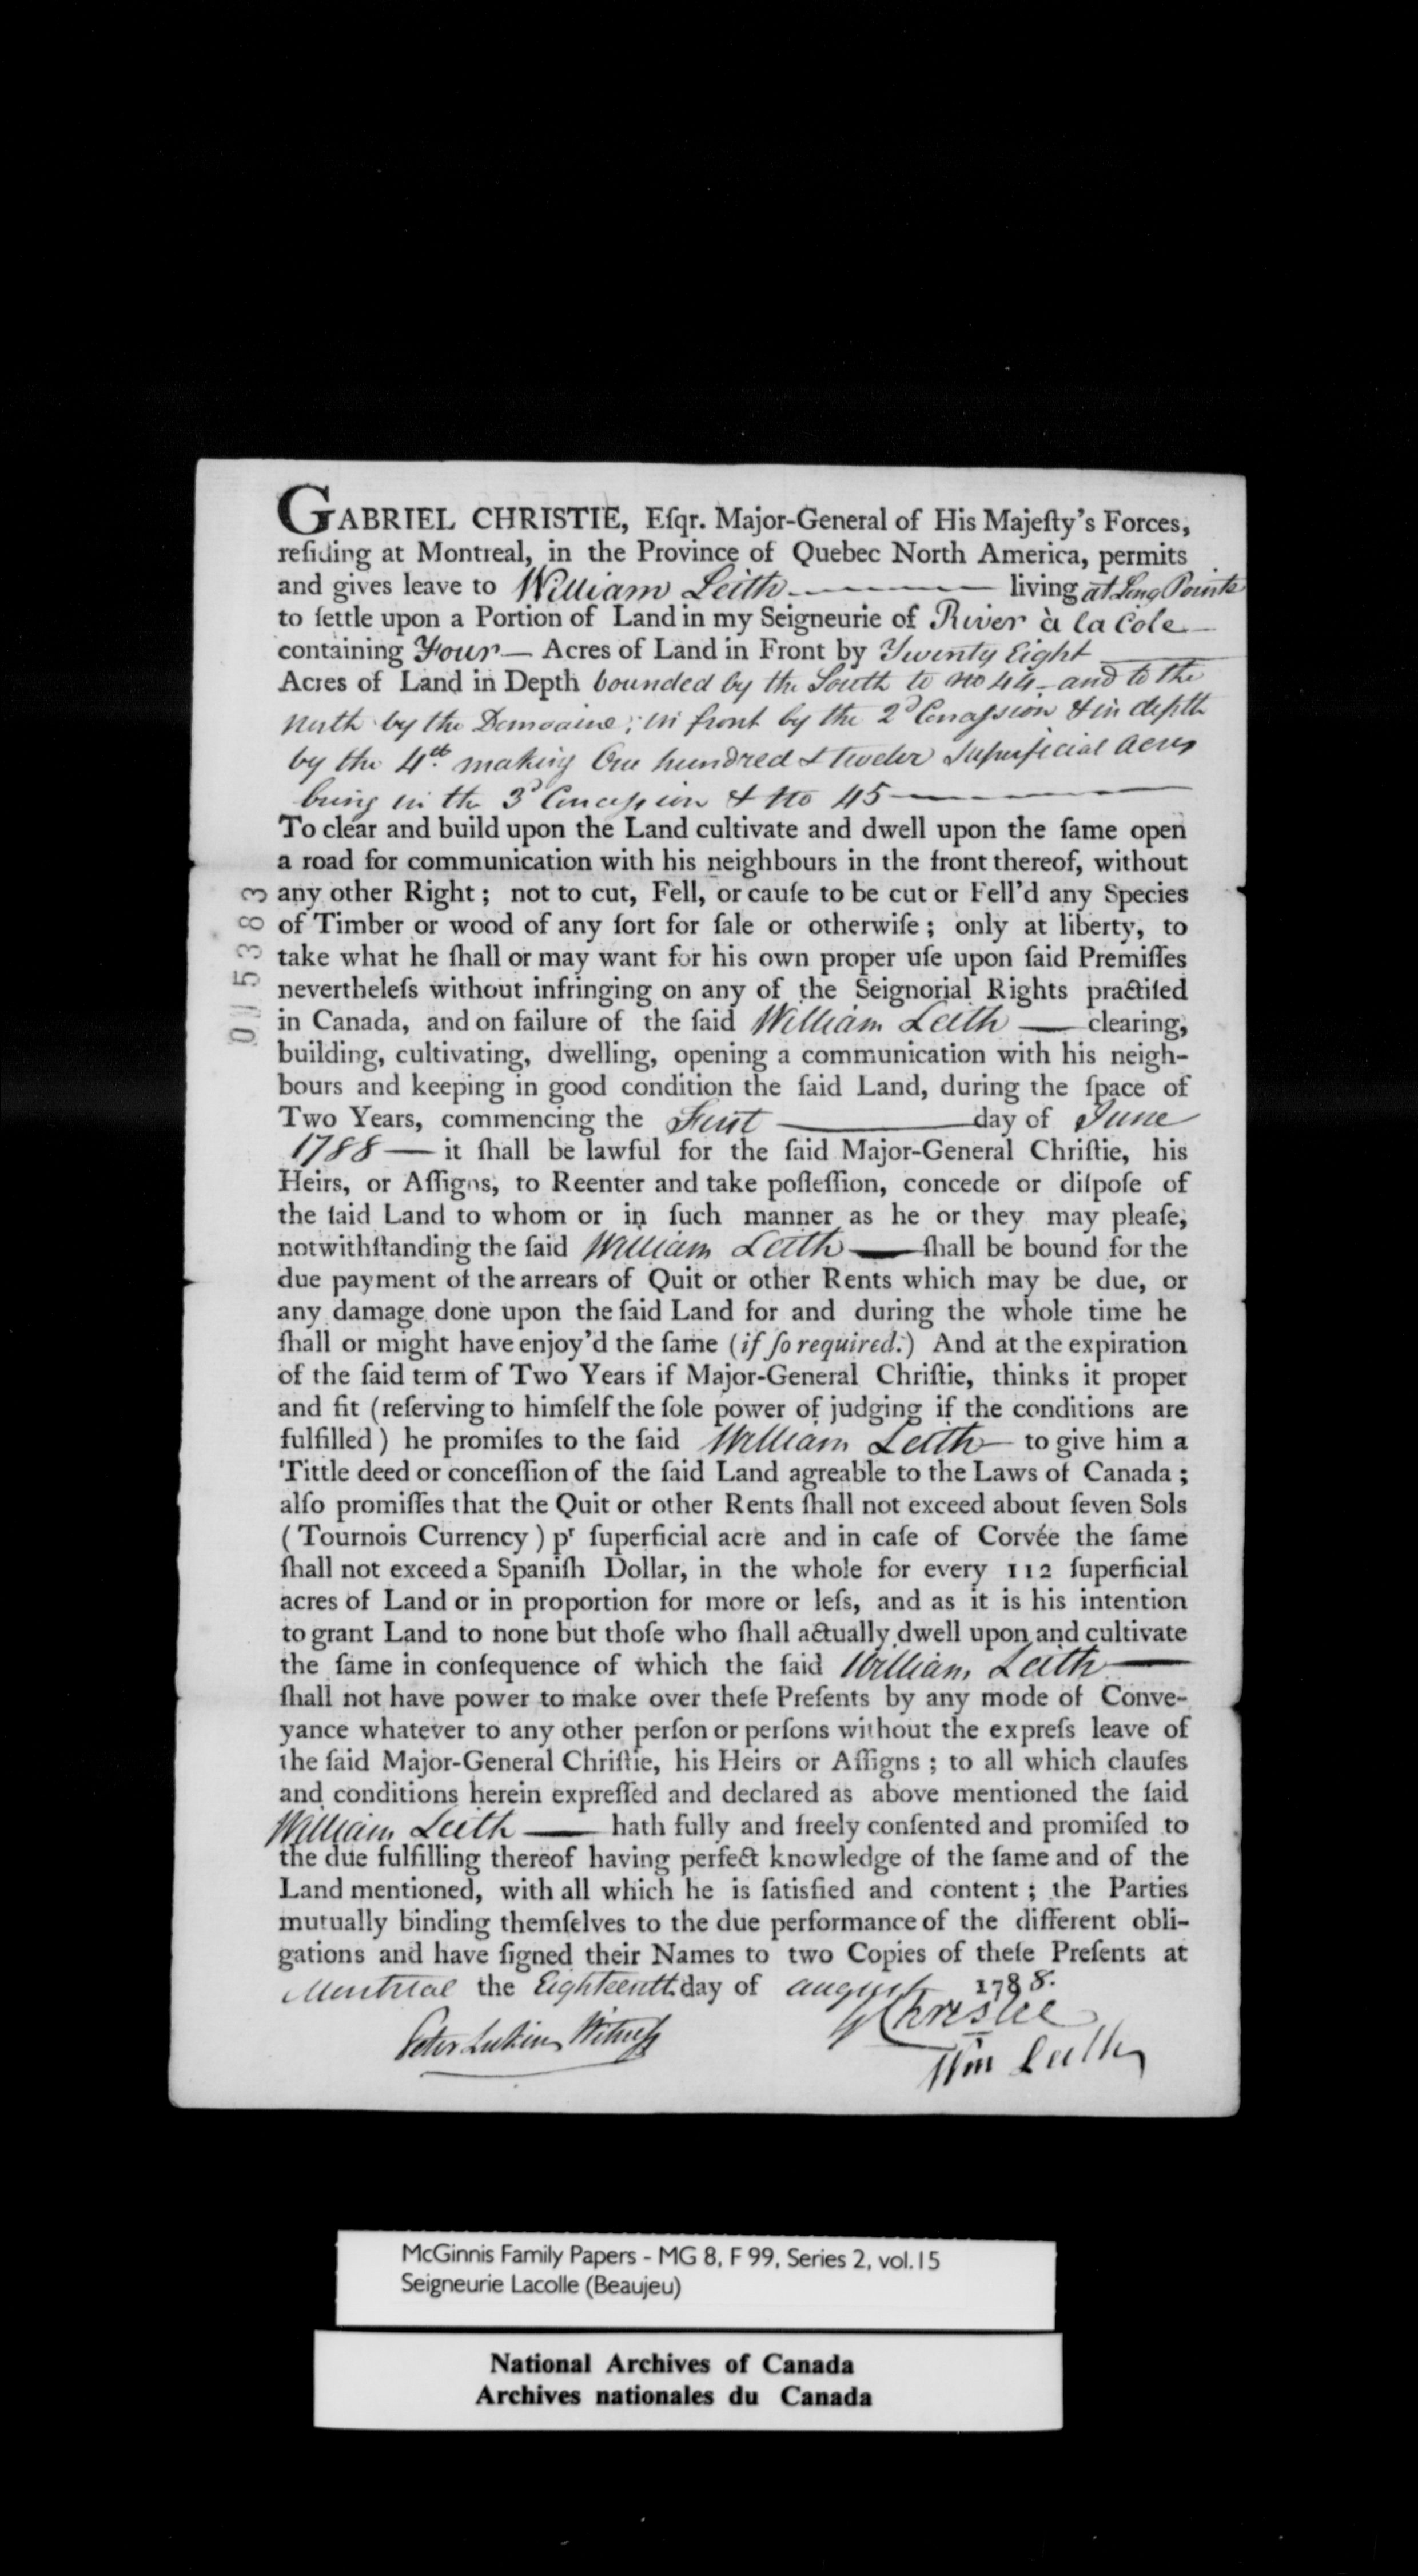 GABRIEL CHRISTIE, Eſqr. Major-General of His Majeſty's Forces,
reſiding at Montreal, in the Province of Quebec North America, permits
and gives leave to William Leith living at Long Pointe
to ſettle upon a Portion of Land in my Seigneurie of River à la Cole
containing Four — Acres of Land in Front by Twenty Eight
Acres of Land in Depth bounded by the South to no 44 - and to the
north by the Domaine; in front by the 2d Concession & in depth
by the 4th making One hundred & twelve Superficial Acres
being in the 3d Concession & No 45
To clear and build upon the Land cultivate and dwell upon the ſame open
a road for communication with his neighbours in the front thereof, without
any other Right; not to cut, Fell, or cauſe to be cut or Fell'd any Species
of Timber or wood of any ſort for ſale or otherwiſe; only at liberty, to
take what he ſhall or may want for his own proper uſe upon ſaid Premiſſes
nevertheleſs without infringing on any of the Seignorial Rights practiſed
in Canada, and on failure of the ſaid William Leith — clearing,
building, cultivating, dwelling, opening a communication with his neigh-
bours and keeping in good condition the ſaid Land, during the ſpace of
Two Years, commencing the First day of June
1788 — it ſhall be lawful for the ſaid Major-General Chriſtie, his
Heirs, or Aſſigns, to Reenter and take poſſeſſion, concede or diſpoſe of
the ſaid Land to whom or in ſuch manner as he or they may pleaſe,
notwithſtanding the ſaid William Leith — ſhall be bound for the
due payment of the arrears of Quit or other Rents which may be due, or
any damage done upon the ſaid Land for and during the whole time he
ſhall or might have enjoy'd the ſame (if ſo required.) And at the expiration
of the ſaid term of Two Years if Major-General Chriſtie, thinks it proper
and fit (reſerving to himſelf the ſole power of judging if the conditions are
fulfilled) he promiſes to the ſaid William Leith — to give him a
Tittle deed or conceſſion of the ſaid Land agreable to the Laws of Canada;
alſo promiſſes that the Quit or other Rents ſhall not exceed about ſeven Sols
(Tournois Currency) pr ſuperficial acre and in caſe of Corvée the ſame
ſhall not exceed a Spaniſh Dollar, in the whole for every 112 ſuperficial
acres of Land or in proportion for more or leſs, and as it is his intention
to grant Land to none but thoſe who ſhall actually dwell upon and cultivate
the ſame in conſequence of which the ſaid William Leith —
ſhall not have power to make over theſe Preſents by any mode of Conve-
yance whatever to any other perſon or perſons without the expreſs leave of
the ſaid Major-General Chriſtie, his Heirs or Aſſigns; to all which clauſes
and conditions herein expreſſed and declared as above mentioned the ſaid
William Leith — hath fully and freely conſented and promiſed to
the due fulfilling thereof having perfect knowledge of the ſame and of the
Land mentioned, with all which he is ſatisfied and content; the Parties
mutually binding themſelves to the due performance of the different obli-
gations and have ſigned their Names to two Copies of theſe Preſents at
Montreal the Eighteenth day of august 1788.
G Christie
Peter Lukin Witneſs
Wm Leith
0115383
McGinnis Family Papers - MG 8, F 99, Series 2, vol.15
Seigneurie Lacolle (Beaujeu)
National Archives of Canada
Archives nationales du Canada